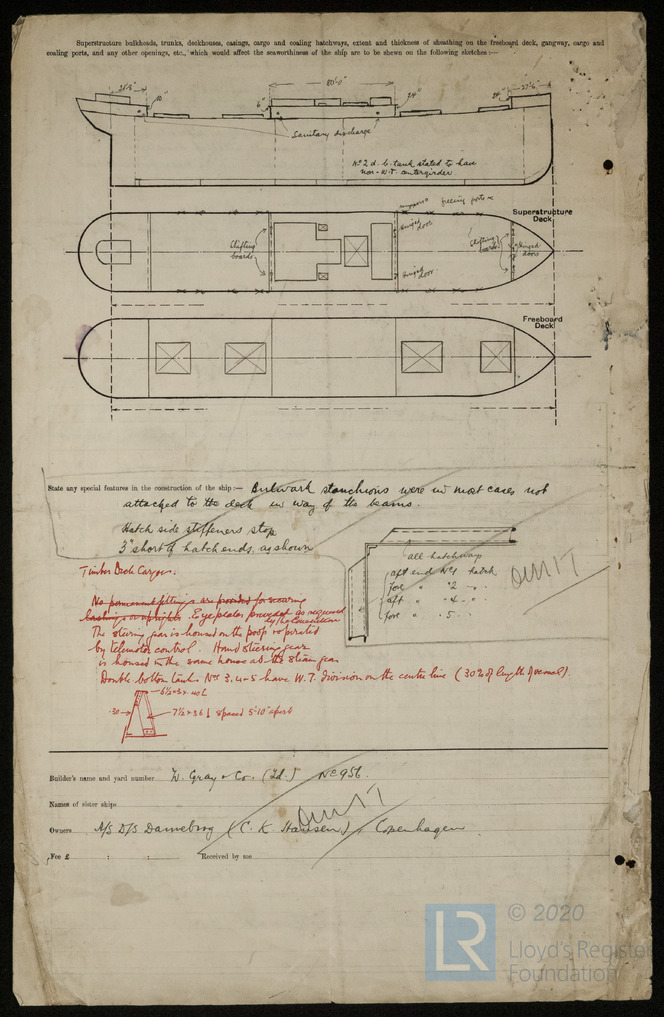 Superstructure bulkheads, trunks, deckhouses, casings, cargo and coaling hatchways, extent and thickness of sheathing on the freeboard deck, gangway, cargo and
coaling ports, and any other openings, etc., which would affect the seaworthiness of the ship are to be shewn on the following sketches:—
80'-0"
6"
24"
Sanitary discharge
No 2 d.b. tank stated to have
non-W.T. centregirder
freeing ports
Superstructure
Deck
Shifting
boards
Hinged
door
Hinged
door
Shifting
boards
Hinged
doors
Freeboard
Deck
State any special features in the construction of the ship:— Bulwark stanchions were in most cases not
attached to the deck in way of the beams.
Hatch side stiffeners stop
3" short of hatch ends, as shown
all hatchways
aft end No 1 hatch
fore " " 2 " "
aft " " 4 " "
fore " " 5 " "
OMIT
Timber Deck Cargoes.
No permanent fittings are provided for securing
lashings or uprights. Eyeplates provided as required
by the Convention
The steering gear is housed in the poop operated
by telemotor control. Hand steering gear
is housed in the same house as the steam gear
Double bottom tanks Nos 3, 4 & 5 have W.T. division on the centre line (30% of length of vessel).
6½ × 3 × .40 L
.30
7½ × .36 spaced 5'-10" apart
Builder's name and yard number W. Gray & Co. (Ld.) No 956.
Names of sister ships
OMIT
Owners A/S D/S Dannebrog (C. K. Hansen), Copenhagen
Fee £ : : Received by me
LR
© 2020
Lloyd's Register
Foundation